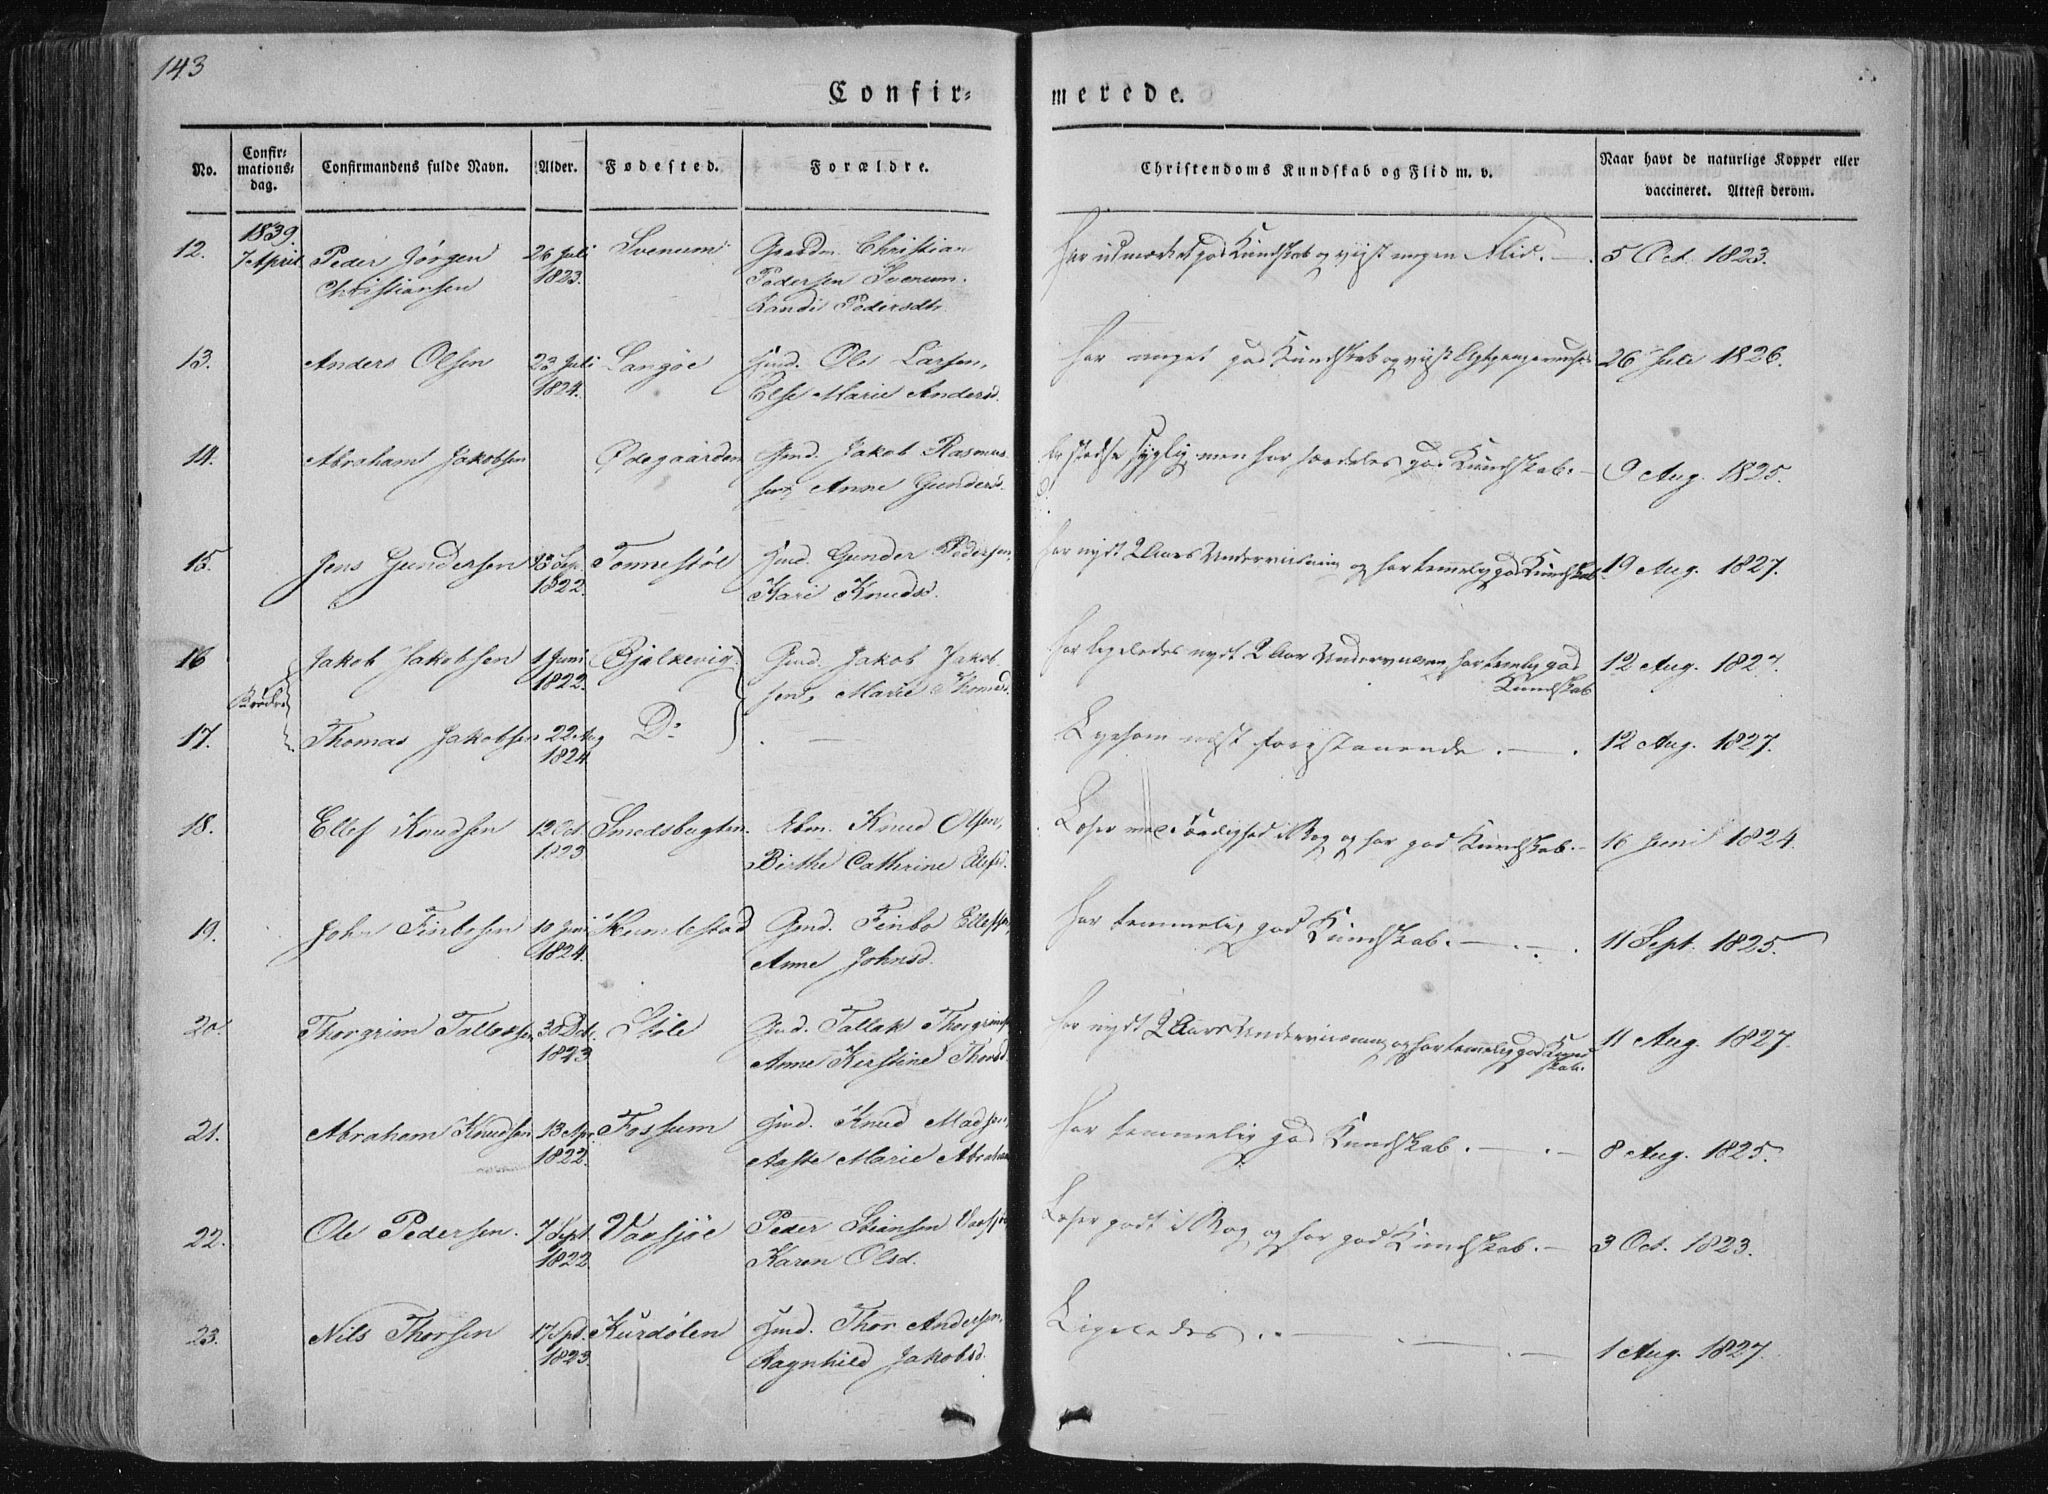 143
Confir-
merede.
No.
Confir-
mations-
dag.
Confirmandens fulde Navn.
Alder.
Fødested.
Forældre.
Christendoms Kundskab og Flid m. v.
Naar havt de naturlige Kopper eller
vaccineret. Attest derom.
1839.
12. 7 April Peder Jørgen 26 Juli Svenum Christian
Christiansen 1823. Pedersen Svenum.
Randi Pedersdtr
Har udmærket god Kundskab og viist megen Flid. 5 Oct. 1823.
13. Anders Olsen 23 Juli Langøe Gmd. Ole Larsen,
1824. Else Marie Andersd.
Har meget god Kundskab og viist 26 Juli 1826.
14. Abraham Jakobsen Ødegaarden Gmd. Jakob Rasmus-
sen, Anne Gundersd.
stedse sygelig, men har særdeles god Kundskab. 9 Aug. 1825.
15. Jens Gundersen Sep. Tonnestøl Gmd. Gunder Pedersen,
1822. Kari Knudsd.
Har nydt 2 Aars Underviisning og har temmelig god Kundskab 19 Aug. 1827.
16 Jakob Jakobsen 1 Juni Bjelkevig Gmd. Jakob Jakob-
1822. sen, Marie Thomasd.
Har ligeledes nydt 2 Aars Underviisning har temmelig god
Kundskab
12 Aug. 1827.
Brødre
17. Thomas Jakobsen 22 Aug Do —
1824.
Ligesom næst forestaaende. — 12 Aug. 1827.
18. Ellef Knudsen 12 Oct. Smedsbugten. Knud Olsen,
1823 Birthe Cathrine Elefsd.
Læser med Færdighed i Bog og har god Kundskab. — 16 Juni 1824.
19. John Finbosen 10 Juni Humlestad Gmd. Finbo Ellefsen,
1824. Anne Johnsd.
Har temmelig god Kundskab. — 11 Sept. 1825.
20. Thorgrim Tallaksen 30 Støle Gmd. Tallak Thorgrims.
1823. Anne Kirstine Thorsd.
Har nydt 2 Aars Underviisning og har temmelig god Kund-
skab.
11 Aug. 1827.
21. Abraham Knudsen 13 Apr. Fossum Gmd. Knud Madsen,
1822. Aaste Marie Abraham
Har temmelig god Kundskab. — 8 Aug. 1825.
22. Ole Pedersen. 7 Sept. Vaasjøe Peder Steansen Vaasjøe
1822 Karen Olsd.
Læser godt i Bog og har god Kundskab. — 3 Oct. 1823.
23. Nils Thorsen 17 Spt. Kurdølen Gmd. Thor Andersen,
1823. Ragnhild Jakobsd.
Ligeledes. — 1 Aug. 1827.